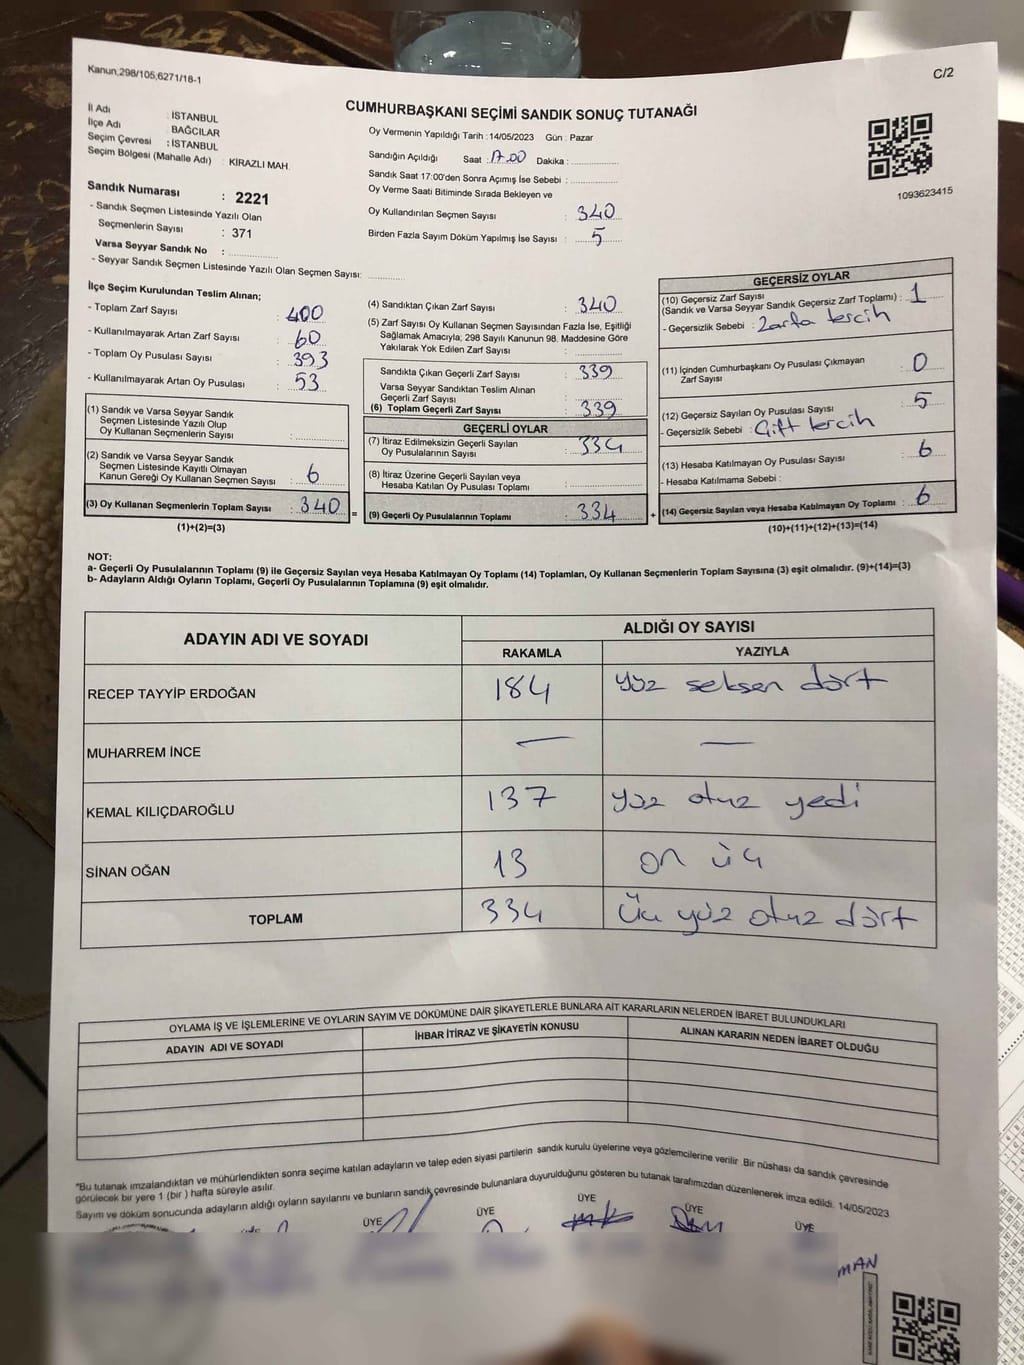 Kanun,298/105,6271/18-1
C/2
CUMHURBAŞKANI SEÇİMİ SANDIK SONUÇ TUTANAĞI
İl Adı : İSTANBUL
İlçe Adı : BAĞCILAR
Seçim Çevresi : İSTANBUL
Seçim Bölgesi (Mahalle Adı) : KİRAZLI MAH.
Sandık Numarası : 2221
- Sandık Seçmen Listesinde Yazılı Olan
Seçmenlerin Sayısı : 371
Varsa Seyyar Sandık No :
- Seyyar Sandık Seçmen Listesinde Yazılı Olan Seçmen Sayısı:
Oy Vermenin Yapıldığı Tarih : 14/05/2023 Gün : Pazar
Sandığın Açıldığı Saat : 17.00 Dakika :
Sandık Saat 17:00'den Sonra Açımış İse Sebebi :
Oy Verme Saati Bitiminde Sırada Bekleyen ve
Oy Kullandırılan Seçmen Sayısı : 340
Birden Fazla Sayım Döküm Yapılmış İse Sayısı : 5
1093623415
İlçe Seçim Kurulundan Teslim Alınan;
- Toplam Zarf Sayısı : 400
- Kullanılmayarak Artan Zarf Sayısı : 60
- Toplam Oy Pusulası Sayısı : 393
- Kullanılmayarak Artan Oy Pusulası : 53
(1) Sandık ve Varsa Seyyar Sandık
Seçmen Listesinde Yazılı Olup
Oy Kullanan Seçmenlerin Sayısı :
(2) Sandık ve Varsa Seyyar Sandık
Seçmen Listesinde Kayıtlı Olmayan
Kanun Gereği Oy Kullanan Seçmen Sayısı : 6
(3) Oy Kullanan Seçmenlerin Toplam Sayısı : 340 =
(1)+(2)=(3)
(4) Sandıktan Çıkan Zarf Sayısı : 340
(5) Zarf Sayısı Oy Kullanan Seçmen Sayısından Fazla İse, Eşitliği
Sağlamak Amacıyla; 298 Sayılı Kanunun 98. Maddesine Göre
Yakılarak Yok Edilen Zarf Sayısı :
Sandıkta Çıkan Geçerli Zarf Sayısı : 339
Varsa Seyyar Sandıktan Teslim Alınan
Geçerli Zarf Sayısı :
(6) Toplam Geçerli Zarf Sayısı : 339
GEÇERLİ OYLAR
(7) İtiraz Edilmeksizin Geçerli Sayılan
Oy Pusulalarının Sayısı : 334
(8) İtiraz Üzerine Geçerli Sayılan veya
Hesaba Katılan Oy Pusulası Toplamı :
(9) Geçerli Oy Pusulalarının Toplamı : 334 +
GEÇERSİZ OYLAR
(10) Geçersiz Zarf Sayısı
(Sandık ve Varsa Seyyar Sandık Geçersiz Zarf Toplamı) : 1
- Geçersizlik Sebebi : Zarfa tercih
(11) İçinden Cumhurbaşkanı Oy Pusulası Çıkmayan
Zarf Sayısı : 0
(12) Geçersiz Sayılan Oy Pusulası Sayısı : 5
- Geçersizlik Sebebi : Çift tercih
(13) Hesaba Katılmayan Oy Pusulası Sayısı : 6
- Hesaba Katılmama Sebebi :
(14) Geçersiz Sayılan veya Hesaba Katılmayan Oy Toplamı : 6
(10)+(11)+(12)+(13)=(14)
NOT:
a- Geçerli Oy Pusulalarının Toplamı (9) ile Geçersiz Sayılan veya Hesaba Katılmayan Oy Toplamı (14) Toplamları, Oy Kullanan Seçmenlerin Toplam Sayısına (3) eşit olmalıdır. (9)+(14)=(3)
b- Adayların Aldığı Oyların Toplamı, Geçerli Oy Pusulalarının Toplamına (9) eşit olmalıdır.
ADAYIN ADI VE SOYADI
ALDIĞI OY SAYISI
RAKAMLA YAZIYLA
RECEP TAYYİP ERDOĞAN 184 yüz seksen dört
MUHARREM İNCE — —
KEMAL KILIÇDAROĞLU 137 yüz otuz yedi
SİNAN OĞAN 13 on üç
TOPLAM 334 Üç yüz otuz dört
OYLAMA İŞ VE İŞLEMLERİNE VE OYLARIN SAYIM VE DÖKÜMÜNE DAİR ŞİKAYETLERLE BUNLARA AİT KARARLARIN NELERDEN İBARET BULUNDUKLARI
ADAYIN ADI VE SOYADI İHBAR İTİRAZ VE ŞİKAYETİN KONUSU ALINAN KARARIN NEDEN İBARET OLDUĞU
"Bu tutanak imzalandıktan ve mühürlendikten sonra seçime katılan adayların ve talep eden siyasi partilerin sandık kurulu üyelerine veya gözlemcilerine verilir Bir nüshası da sandık çevresinde
görülecek bir yere 1 (bir ) hafta süreyle asılır.
Sayım ve döküm sonucunda adayların aldığı oyların sayılarını ve bunların sandık çevresinde bulunanlara duyurulduğunu gösteren bu tutanak tarafımızdan düzenlenerek imza edildi. 14/05/2023
ÜYE ÜYE ÜYE ÜYE ÜYE
MAN